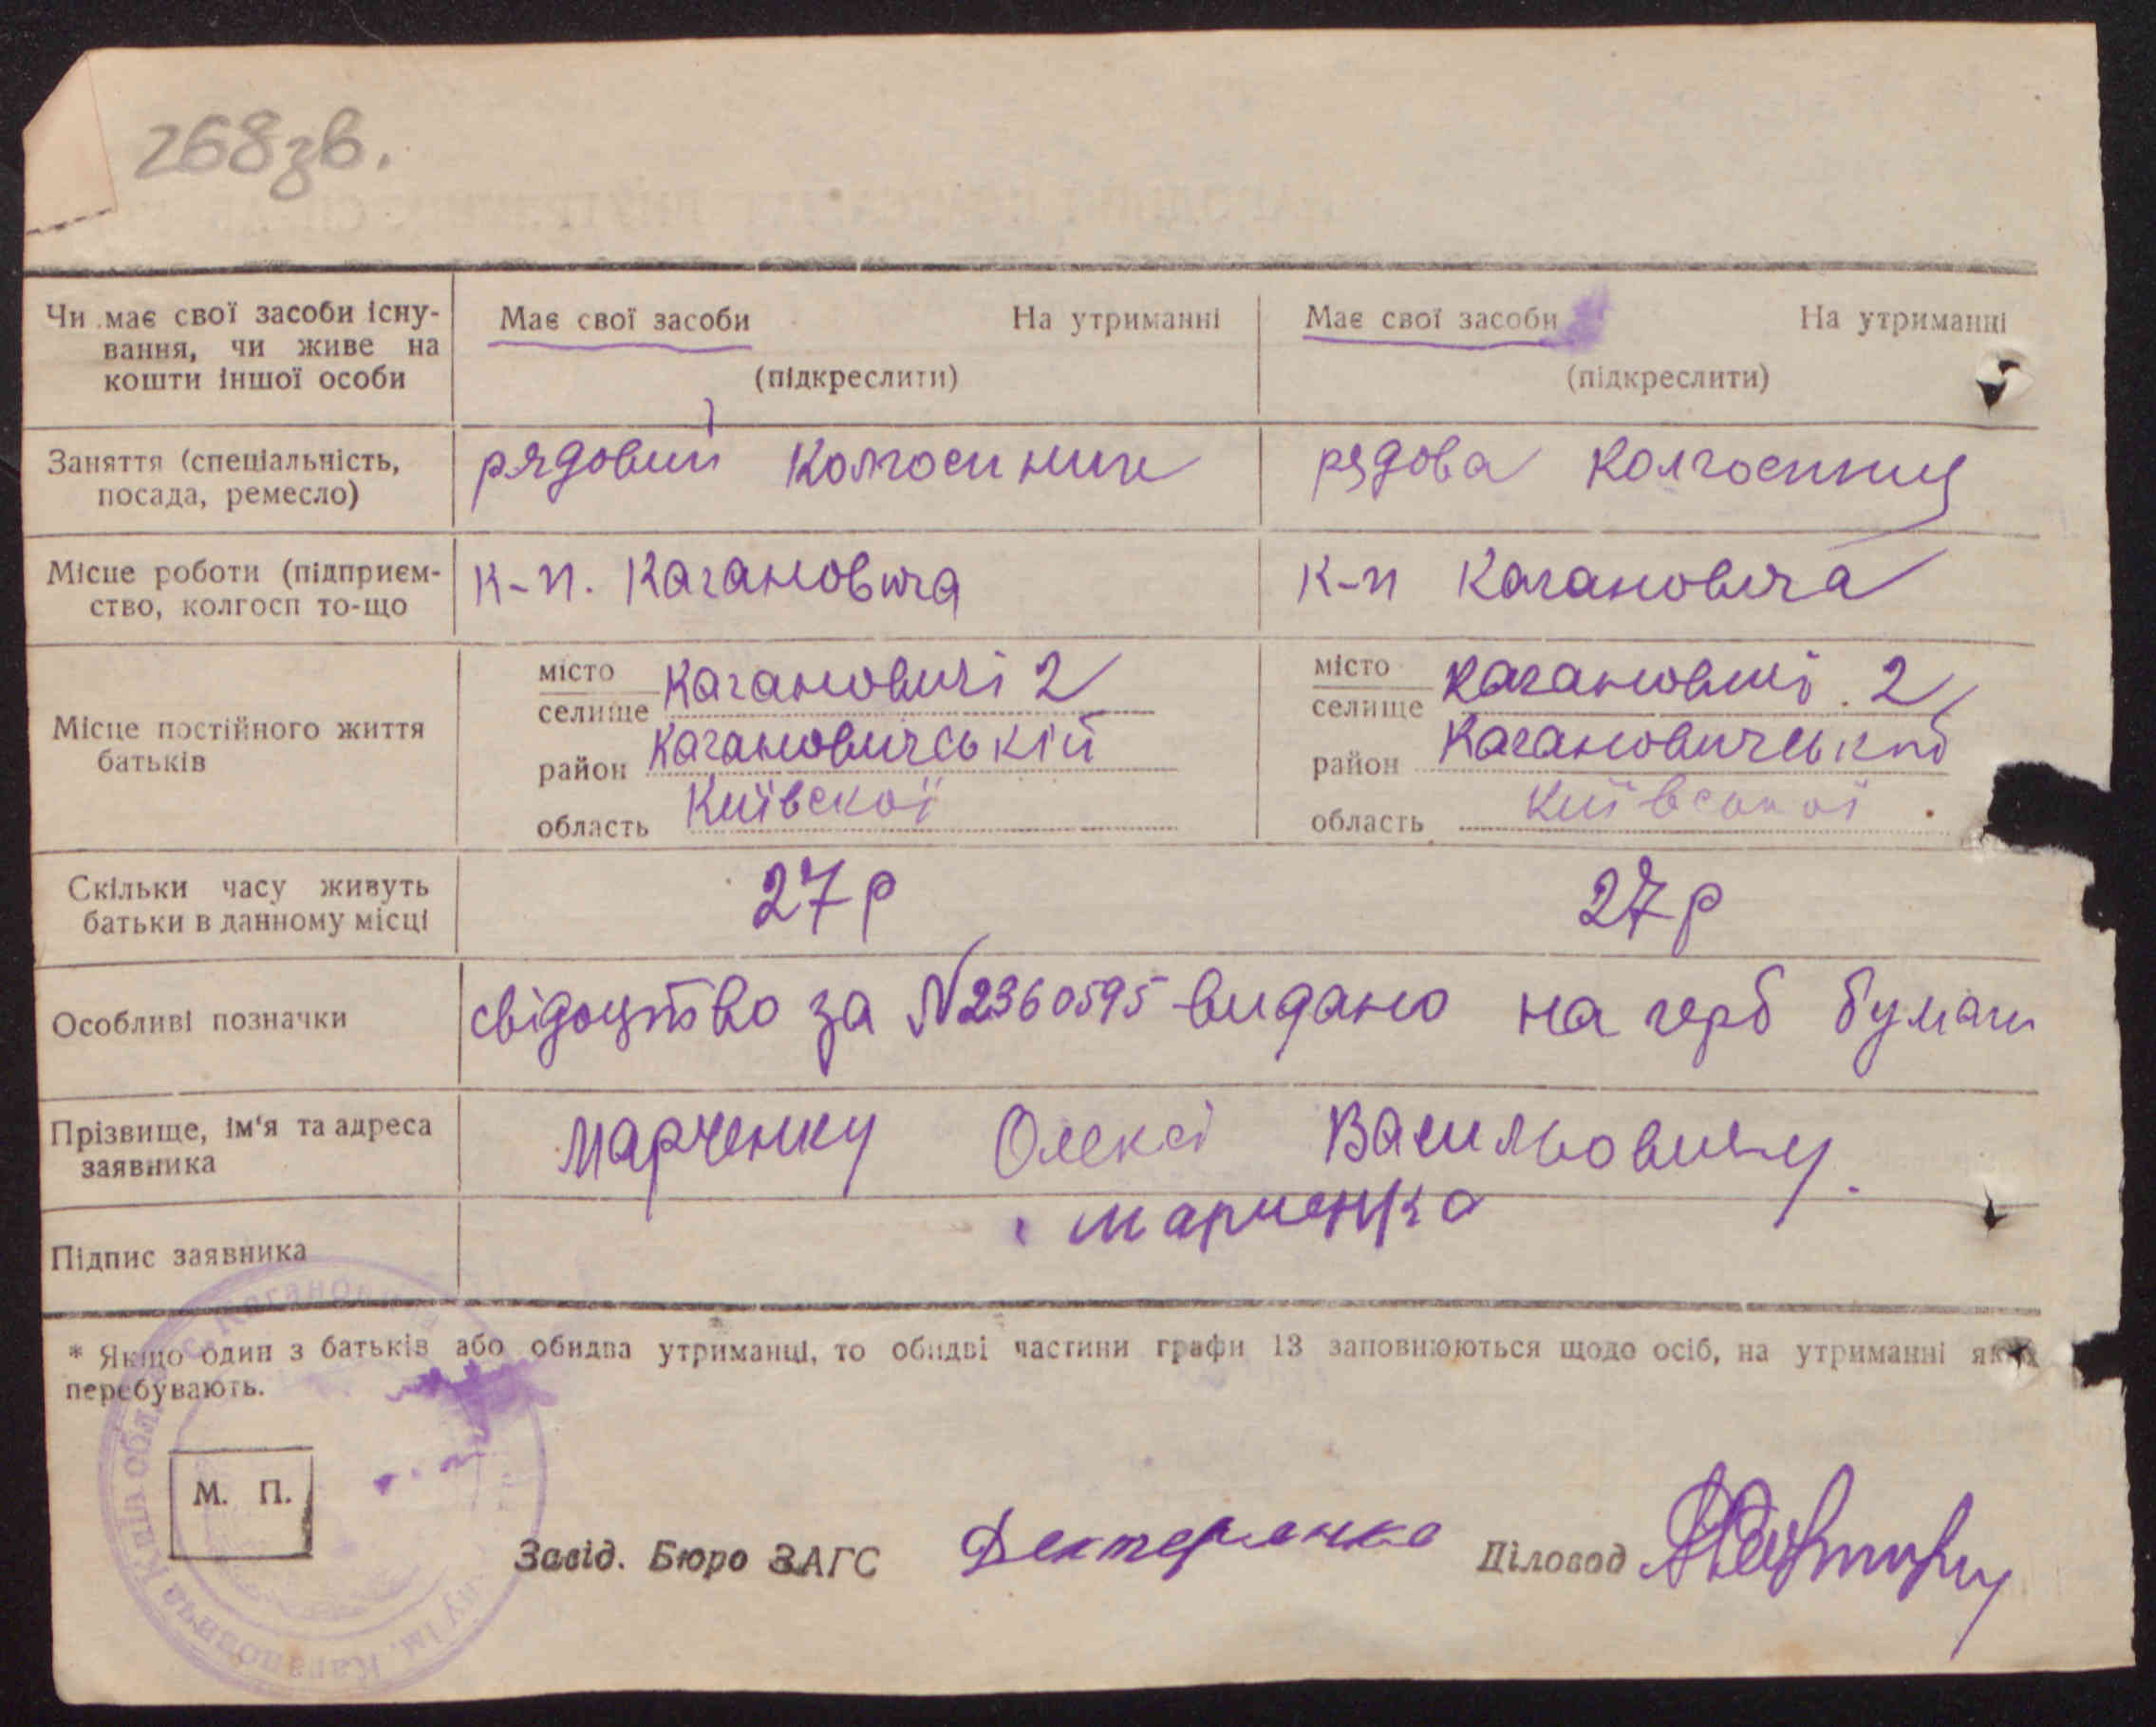 268зв.
Чи має свої засоби існу-
вання, чи живе на
кошти іншої особи
Має свої засоби На утриманні
(підкреслити)
Має свої засоби На утриманні
(підкреслити)
Заняття (спеціальність,
посада, ремесло)
рядовий колгоспник
рядова колгоспниця
Місце роботи (підприєм-
ство, колгосп то-що
к-п. Кагановича
к-п Кагановича
Місце постійного життя
батьків
місто
селище Кагановичі 2
район Кагановичській
область Київскої
місто
селище Кагановичі. 2
район Кагановичській
область Київської
Скільки часу живуть
батьки в данному місці
27 р
27 р
Особливі позначки
свідоцтво за N2360595 видано на герб бумаги
Прізвище, ім'я та адреса
заявника
Марченку Олексі Васильовичу.
Підпис заявника
Марченко
* Якщо один з батьків або обидва утриманці, то обидві частини графи 13 заповнюються щодо осіб, на утриманні яких
перебувають.
М. П.
Завід. Бюро ЗАГС Дехтеренко Діловод